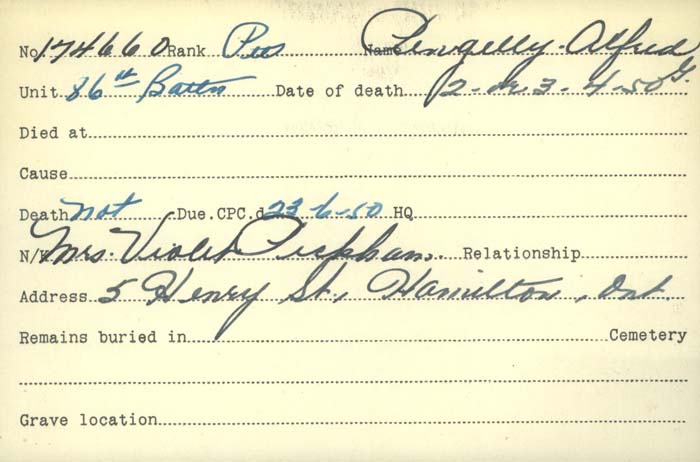 No. 174660 Rank Pte Name Pengelly Alfred G.
Unit 86th Battn Date of death 2-or 3-4-50
Died at
Cause
Death not Due. CPC.d 23-6-50 HQ
N/K Mrs. Violet Peckham. Relationship
Address 5 Henry St., Hamilton, Ont.
Remains buried in Cemetery
Grave location